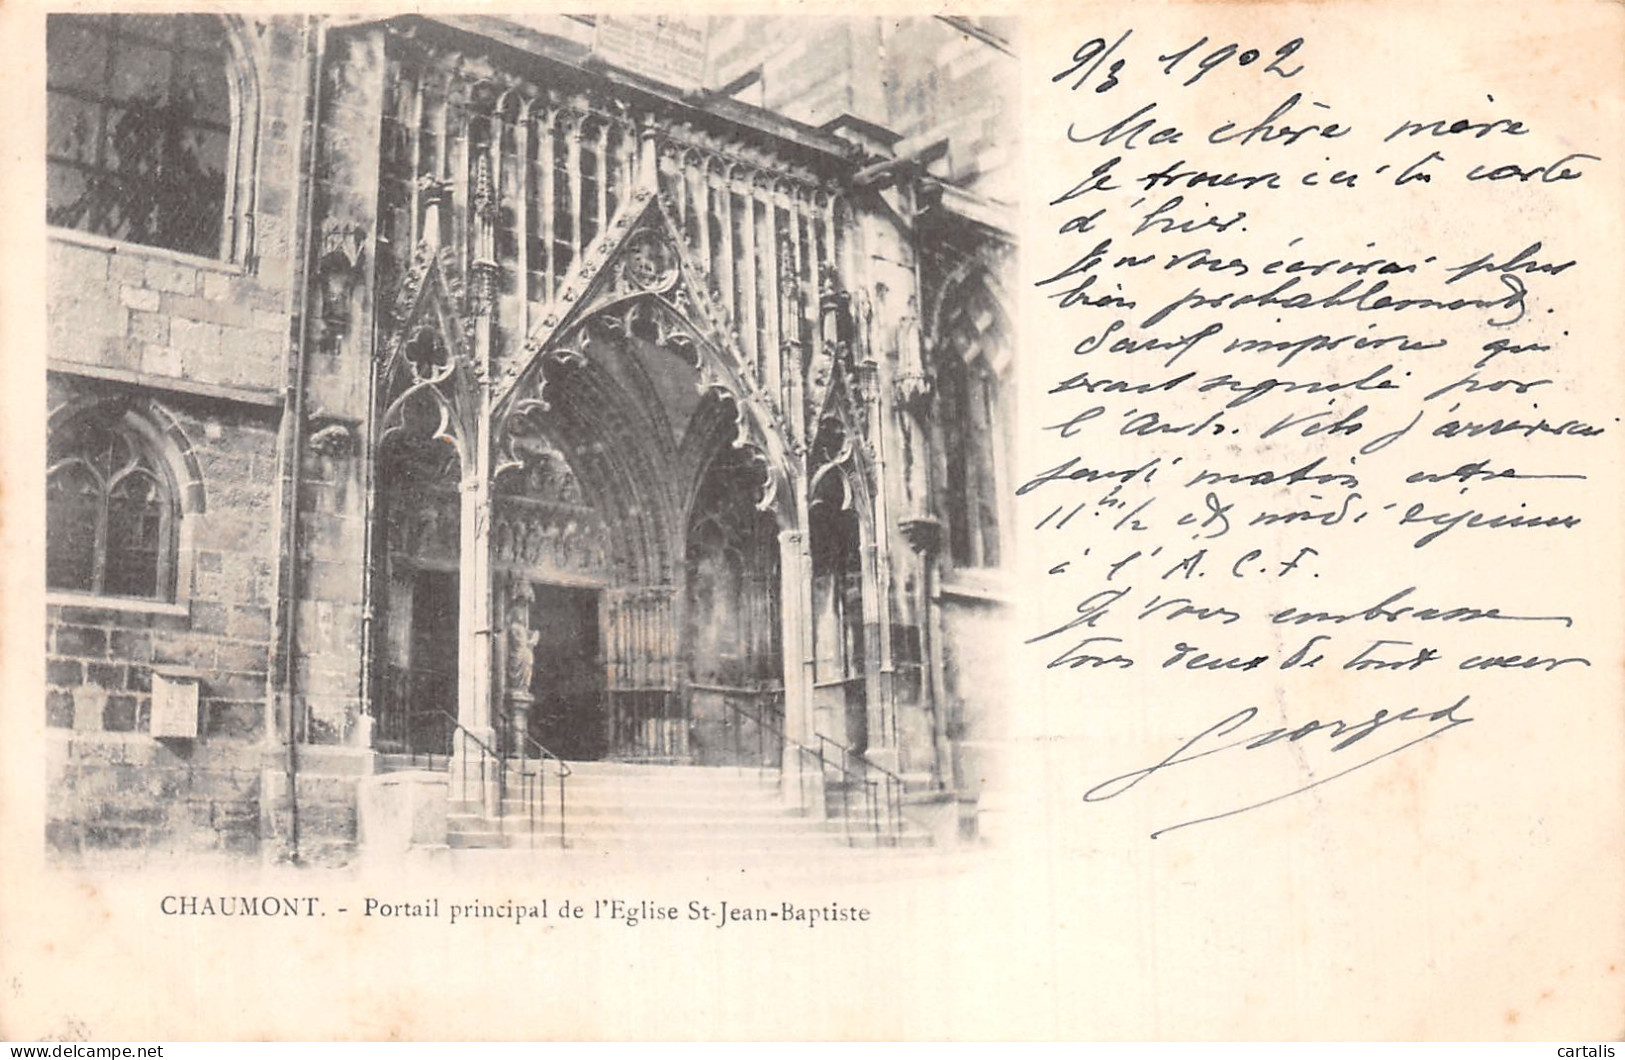 9/3 1902
Ma chère mère
Je trouve ici ta carte
d'hier.
Je ne vous écrirai plus
bien probablement.
Sauf imprévu qui
serait signalé par
l'Auto-Vélo j'arriverai
jeudi matin entre
11h 1/2 et midi déjeuner
à l'A.C.F.
Je vous embrasse
tous deux de tout coeur
Georges
CHAUMONT. - Portail principal de l'Eglise St-Jean-Baptiste
cartalis